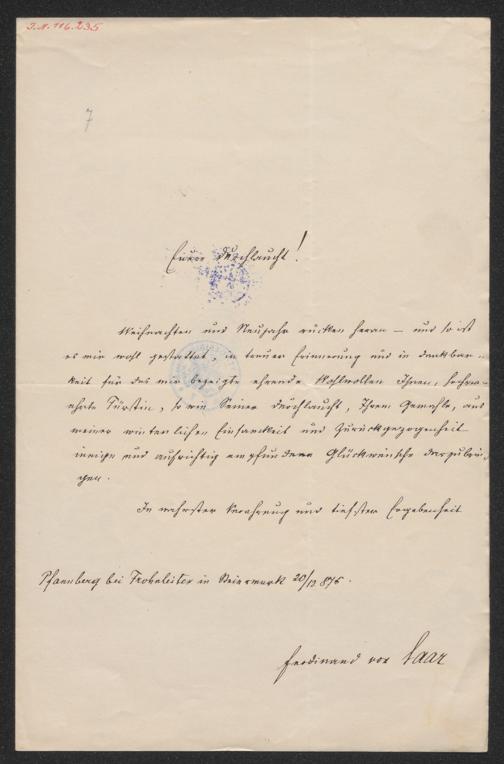 I.N. 116.235
7
Euere Durchlaucht!
Weihnachten und Neujahr rücken heran – und so ist
es mir wohl gestattet, in treuer Erinnerung und in Dankbar-
keit für das mir bezeigte ehrende Wohlwollen Ihnen, hochver-
ehrte Fürstin, so wie Seiner Durchlaucht, Ihrem Gemahle, aus
meiner winterlichen Einsamkeit und Zurückgezogenheit
innige und aufrichtig empfundene Glückwünsche darzubrin-
gen.
In wahrster Verehrung und tiefster Ergebenheit
Pfannberg bei Frohnleiten in Steiermark 20/12 875.
Ferdinand von Saar